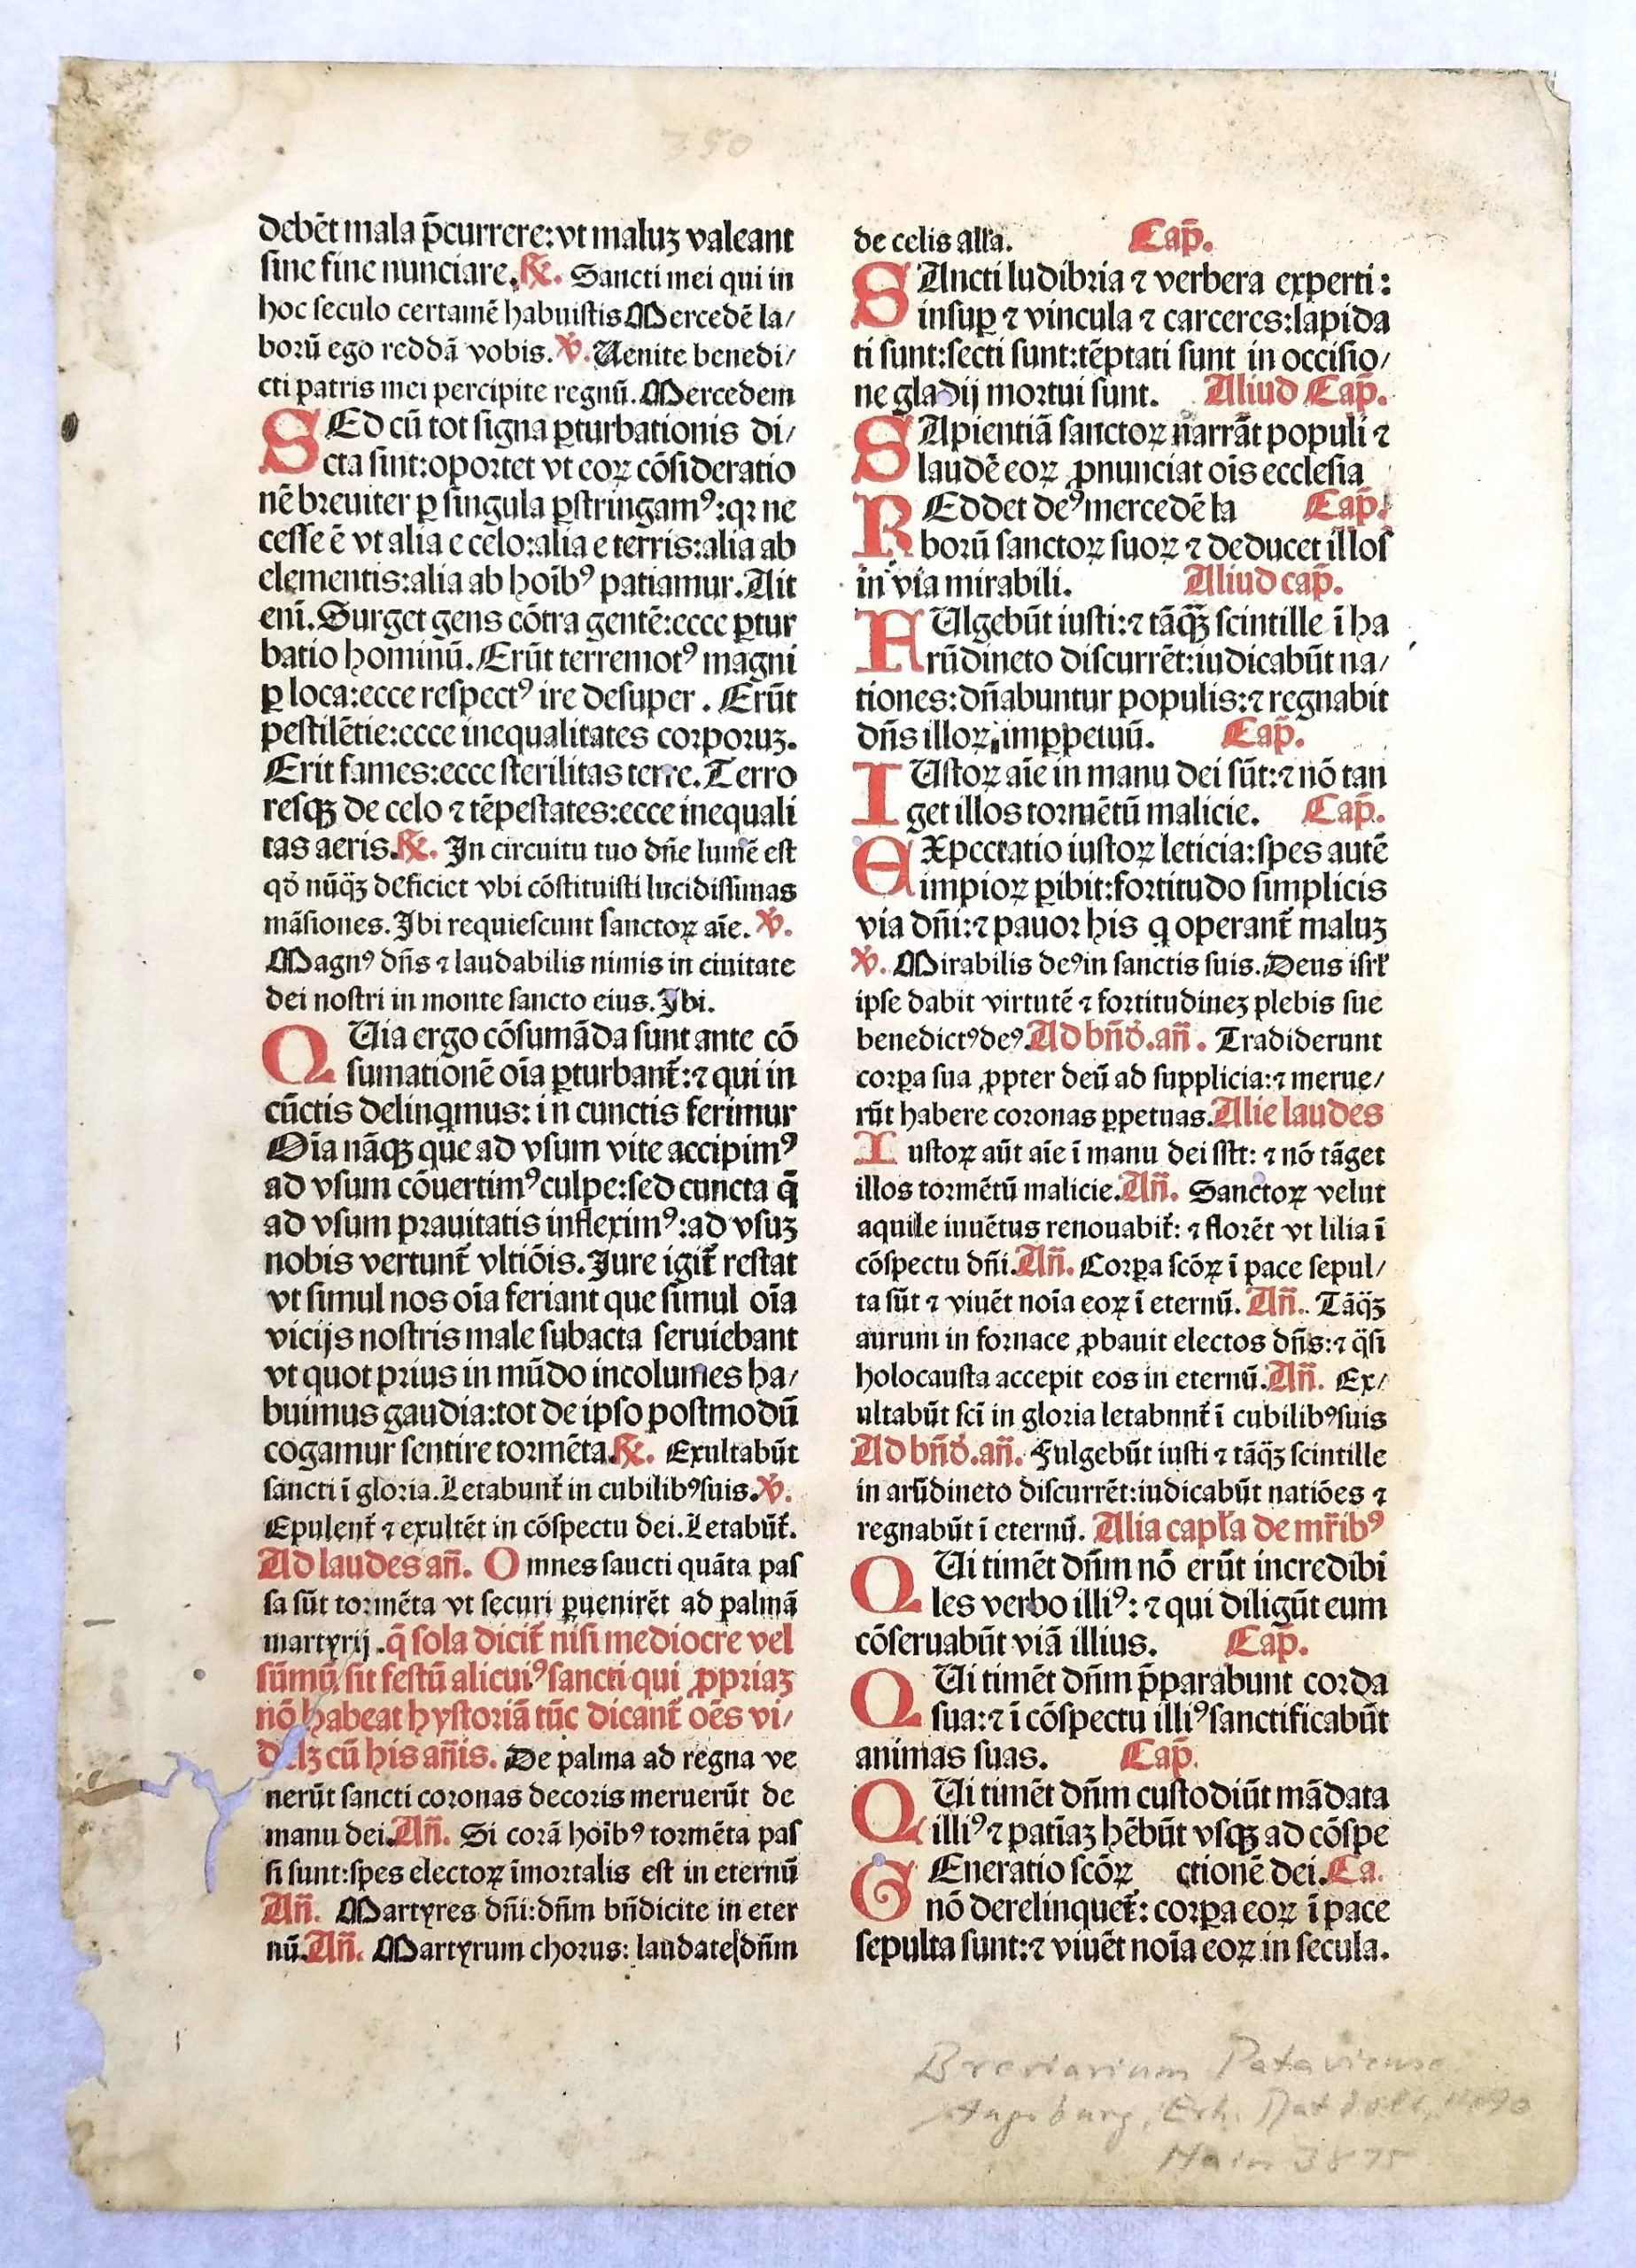 350
debēt mala p̄currere: vt maluʒ valeant
sine fine nunciare. ℟. Sancti mei qui in
hoc seculo certamē habuistis Mercedē la/
borū ego reddā vobis. ℣. Uenite benedi/
cti patris mei percipite regnū. Mercedem
SEd cū tot signa ꝑturbationis di/
cta sint: oportet vt eoꝝ cōsideratio
nē breuiter ꝑ singula ꝑstringamꝰ: qꝛ ne
cesse ē vt alia e celo: alia e terris: alia ab
elementis: alia ab hoībꝰ patiamur. Ait
enī. Surget gens cōtra gentē: ecce ꝑtur
batio hominū. Erūt terremotꝰ magni
ꝑ loca: ecce respectꝰ ire desuper. Erūt
pestilētie: ecce inequalitates corporuʒ.
Erit fames: ecce sterilitas terre. Terro
resqʒ de celo ⁊ tēpestates: ecce inequali
tas aeris. ℟. In circuitu tuo dn̄e lumē est
qď nūq̄ʒ deficiet vbi cōstituisti lucidissimas
māsiones. Ibi requiescunt sanctoꝝ aīe. ℣.
Magnꝰ dn̄s ⁊ laudabilis nimis in ciuitate
dei nostri in monte sancto eius. Ibi.
QUia ergo cōsumāda sunt ante cō
sumationē oīa ꝑturbant̄: ⁊ qui in
cūctis delinqmus: in cunctis ferimur
Oīa nāqʒ que ad vsum vite accipimꝰ
ad vsum cōuertimꝰ culpe: sed cuncta q̄
ad vsum prauitatis infleximꝰ: ad vsuʒ
nobis vertunt̄ vltiōis. Jure igit̄ restat
vt simul nos oīa feriant que simul oīa
vicijs nostris male subacta seruiebant
vt quot prius in mūdo incolumes ha/
buimus gaudia: tot de ipso postmodū
cogamur sentire tormēta. ℟. Exultabūt
sancti ī gloria. Letabunt̄ in cubilibꝰ suis. ℣.
Epulent̄ ⁊ exultēt in cōspectu dei. Letabūt̄.
Ad laudes an̄. Omnes sancti quāta pas
sa sūt tormēta vt securi ꝑuenirēt ad palmā
martyrij. q̄ sola dicit̄ nisi mediocre vel
sūmū sit festū alicuiꝰ sancti qui ꝓpriaʒ
nō habeat hystoriā tūc dicant̄ oēs vi/
delʒ cū his an̄is. De palma ad regna ve
nerūt sancti coronas decoris meruerūt de
manu dei. An̄. Si corā hoībꝰ tormēta pas
si sunt: spes electoꝝ īmortalis est in eternū
An̄. Martyres dn̄i: dn̄m bn̄dicite in eter
nū. An̄. Martyrum chorus: laudate dn̄m
de celis all'a. Cap̄.
SAncti ludibria ⁊ verbera experti:
insuꝑ ⁊ vincula ⁊ carceres: lapida
ti sunt: secti sunt: tēptati sunt in occisio/
ne gladij mortui sunt. Aliud Cap̄.
SApientiā sanctoꝝ narrāt populi ⁊
laudē eoꝝ ꝓnunciat oīs ecclesia
REddet deꝰ mercedē la Cap̄.
borū sanctoꝝ suoꝝ ⁊ deducet illos
in via mirabili. Aliud cap̄.
FUlgebūt iusti: ⁊ tāq̄ʒ scintille ī ha
rūdineto discurrēt: iudicabūt na/
tiones: dn̄abuntur populis: ⁊ regnabit
dn̄s illoꝝ imꝑpetuū. Cap̄.
IUstoꝝ aīe in manu dei sūt: ⁊ nō tan
get illos tormētū malicie. Cap̄.
EXpectatio iustoꝝ leticia: spes autē
impioꝝ ꝑibit: fortitudo simplicis
via dn̄i: ⁊ pauor his q operant̄ maluʒ
℣. Mirabilis deꝰ in sanctis suis. Deus isrl'
ipse dabit virtutē ⁊ fortitudineʒ plebis sue
benedictꝰ deꝰ. Ad bn̄d̄. an̄. Tradiderunt
corꝑa sua ꝓpter deū ad supplicia: ⁊ merue/
rūt habere coronas ꝑpetuas. Alie laudes
Iustoꝝ aūt aīe ī manu dei st̄t: ⁊ nō tāget
illos tormētū malicie. An̄. Sanctoꝝ velut
aquile iuuētus renouabit̄: ⁊ florēt vt lilia ī
cōspectu dn̄i. An̄. Corꝑa scōꝝ ī pace sepul/
ta sūt ⁊ viuēt noīa eoꝝ ī eternū. An̄. Tāq̄ʒ
aurum in fornace ꝓbauit electos dn̄s: ⁊ q̄si
holocausta accepit eos in eternū. An̄. Ex/
ultabūt scī in gloria letabunt̄ ī cubilibꝰ suis
Ad bn̄d̄. an̄. Fulgebūt iusti ⁊ tāq̄ʒ scintille
in arūdineto discurrēt: iudicabūt natiōes ⁊
regnabūt ī eternū. Alia capl'a de mr̄ibꝰ
QUi timēt dn̄m nō erūt incredibi
les verbo illiꝰ: ⁊ qui diligūt eum
cōseruabūt viā illius. Cap̄.
QUi timēt dn̄m p̄parabunt corda
sua: ⁊ ī cōspectu illiꝰ sanctificabūt
animas suas. Cap̄.
QUi timēt dn̄m custodiūt mādata
illiꝰ ⁊ patīaʒ hēbūt vsqʒ ad cōspe
GEneratio scōꝝ ctionē dei. Ca.
nō derelinquet̄: corꝑa eoꝝ ī pace
sepulta sunt: ⁊ viuēt noīa eoꝝ in secula.
Breviarium Pataviense
Augsburg, Erh. Ratdolt, 1490
Hain 3875